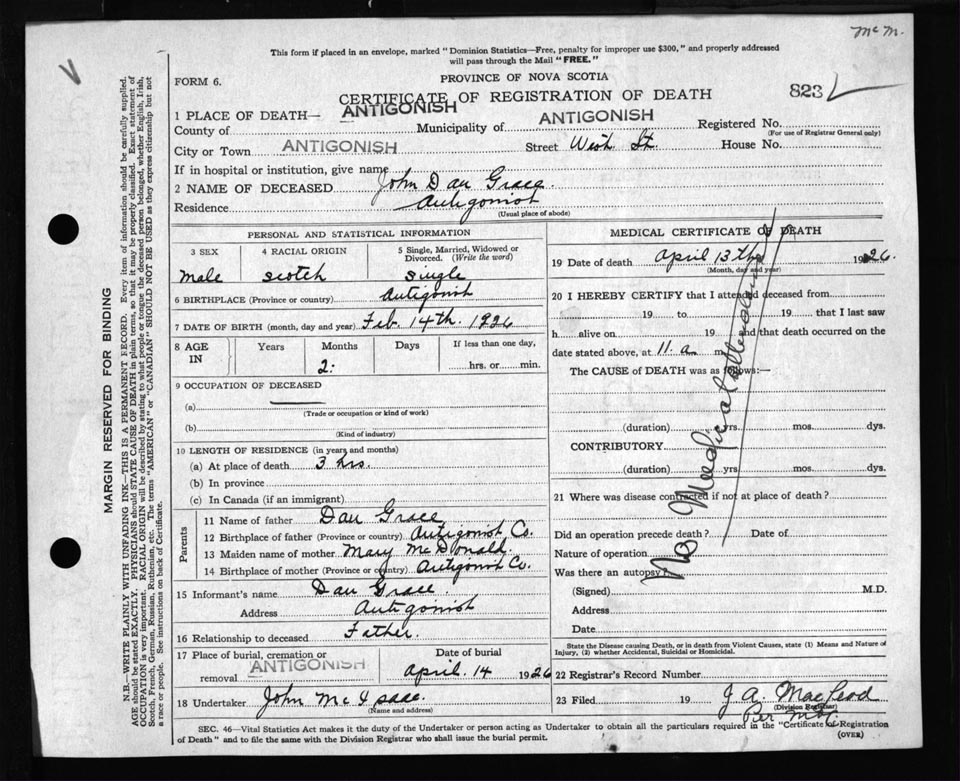 McM.
V
This form if placed in an envelope, marked "Dominion Statistics—Free, penalty for improper use $300," and properly addressed
will pass through the Mail "FREE."
FORM 6.
PROVINCE OF NOVA SCOTIA
CERTIFICATE OF REGISTRATION OF DEATH
823
1 PLACE OF DEATH— ANTIGONISH
County of Municipality of ANTIGONISH Registered No.
(For use of Registrar General only)
City or Town ANTIGONISH Street West St. House No.
If in hospital or institution, give name
2 NAME OF DECEASED John Dan Grace.
Residence Antigonish
(Usual place of abode)
PERSONAL AND STATISTICAL INFORMATION
3 SEX 4 RACIAL ORIGIN 5 Single, Married, Widowed or
Divorced. (Write the word)
male scotch single
6 BIRTHPLACE (Province or country) Antigonish
7 DATE OF BIRTH (month, day and year) Feb. 14th. 1926
8 AGE IN Years Months Days If less than one day,
2: hrs. or min.
9 OCCUPATION OF DECEASED
(a)
(Trade or occupation or kind of work)
(b)
(Kind of industry)
10 LENGTH OF RESIDENCE (in years and months)
(a) At place of death 3 hrs.
(b) In province
(c) In Canada (if an immigrant)
Parents
11 Name of father Dan Grace
12 Birthplace of father (Province or country) Antigonish Co.
13 Maiden name of mother Mary McDonald.
14 Birthplace of mother (Province or country) Antigonish Co.
15 Informant's name Dan Grace
Address Antigonish
16 Relationship to deceased Father.
17 Place of burial, cremation or Date of burial
removal ANTIGONISH April. 14 1926
18 Undertaker John McIsaac.
(Name and address)
MEDICAL CERTIFICATE OF DEATH
19 Date of death April 13th 1926.
(Month, day and year)
20 I HEREBY CERTIFY that I attended deceased from
19 to 19 that I last saw
h alive on 19 and that death occurred on
date stated above, at 11. a m.
The CAUSE of DEATH was as follows:—
No Medical attendance
(duration) yrs. mos. dys.
CONTRIBUTORY
(duration) yrs mos. dys.
21 Where was disease contracted if not at place of death?
Did an operation precede death? Date of
Nature of operation
Was there an autopsy?
(Signed) M.D.
Address
Date
State the Disease causing Death, or in death from Violent Causes, state (1) Means and Nature of
Injury, (2) whether Accidental, Suicidal or Homicidal.
22 Registrar's Record Number
23 Filed 19 J A. MacLeod
(Division Registrar)
Per
SEC. 46—Vital Statistics Act makes it the duty of the Undertaker or person acting as Undertaker to obtain all the particulars required in the "Certificate of Registration
of Death" and to file the same with the Division Registrar who shall issue the burial permit. (OVER)
MARGIN RESERVED FOR BINDING
N.B.—WRITE PLAINLY WITH UNFADING INK—THIS IS A PERMANENT RECORD. Every item of information should be carefully supplied.
AGE should be stated EXACTLY. PHYSICIANS should STATE CAUSE OF DEATH in plain terms, so that it may be properly classified. Exact statement of
OCCUPATION is very important. RACIAL ORIGIN will be described by stating to what people or tongue the deceased person belonged, whether English, Irish,
Scotch, French, German, Russian, Ruthenian, etc. The terms "AMERICAN" or "CANADIAN" SHOULD NOT BE USED as they express citizenship but not
a race or people. See instructions on back of Certificate.